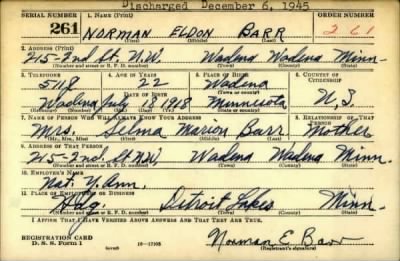 Discharged December 6, 1945
SERIAL NUMBER 1. NAME (Print) ORDER NUMBER
261 NORMAN ELDON BARR 261
(First) (Middle) (Last)
2. ADDRESS (Print)
215-2nd St. N.W. Wadena Wadena Minn.
(Number and street or R. F. D. number) (Town) (County) (State)
3. TELEPHONE 4. AGE IN YEARS 5. PLACE OF BIRTH 6. COUNTRY OF CITIZENSHIP
511J 22 Wadena
DATE OF BIRTH (Town or county)
Wadena July 1918 Minnesota U.S.
(Exchange) (Number) (Mo.) (Day) (Yr.) (State or country)
7. NAME OF PERSON WHO WILL ALWAYS KNOW YOUR ADDRESS 8. RELATIONSHIP OF THAT PERSON
Mrs. Selma Marion Barr Mother
(Mr., Mrs., Miss) (First) (Middle) (Last)
9. ADDRESS OF THAT PERSON
215-2nd St N.W. Wadena Wadena Minn.
(Number and street or R. F. D. number) (Town) (County) (State)
10. EMPLOYER'S NAME
Nat. Y. Ann.
11. PLACE OF EMPLOYMENT OR BUSINESS
Hdq. Detroit Lakes Minn.
(Number and street or R. F. D. number) (Town) (County) (State)
I AFFIRM THAT I HAVE VERIFIED ABOVE ANSWERS AND THAT THEY ARE TRUE.
REGISTRATION CARD
D. S. S. Form 1 16-17105
Norman E Barr
(Registrant's signature)